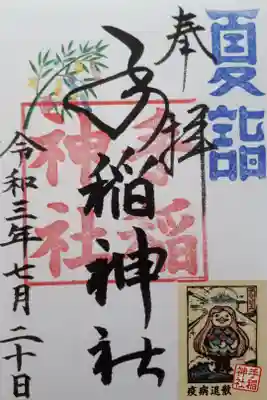 夏詣
奉拝
手稲神社
手稲
神社
令和三年七月二十日
疫病退散
手稲
神社